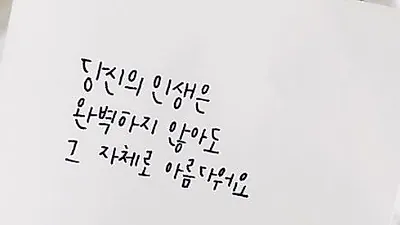 당신의 인생은
완벽하지 않아도
그 자체로 아름다워요